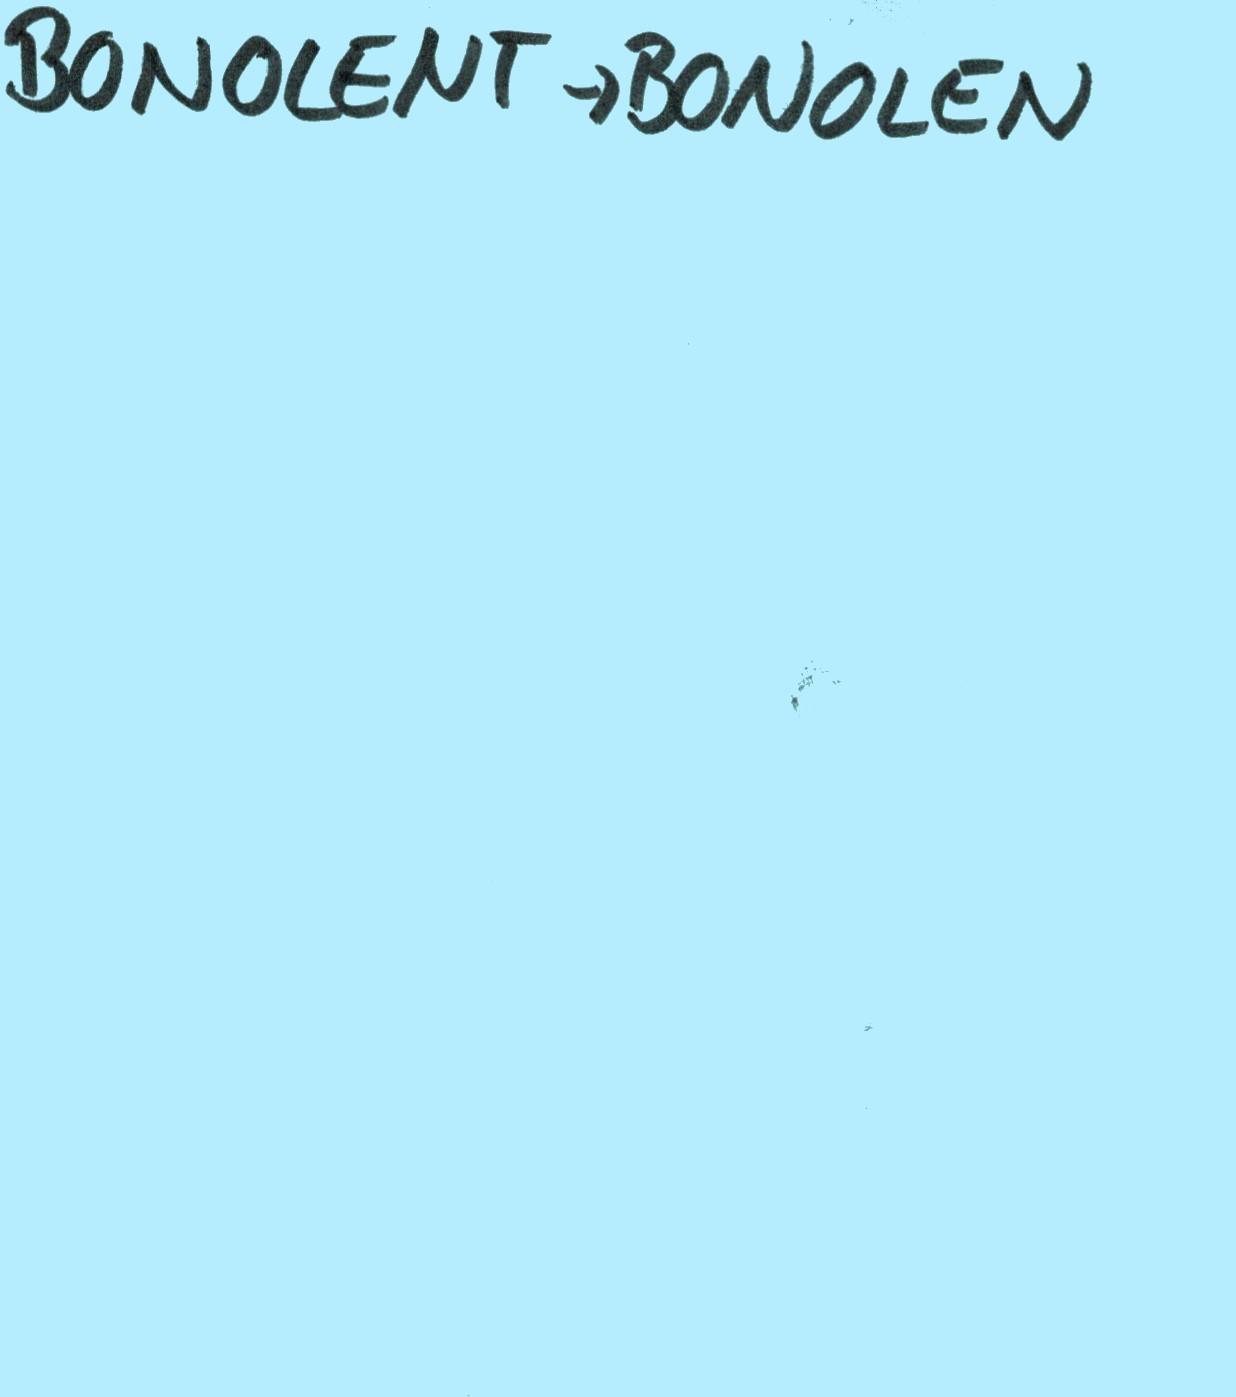 BONOLENT → BONOLEN